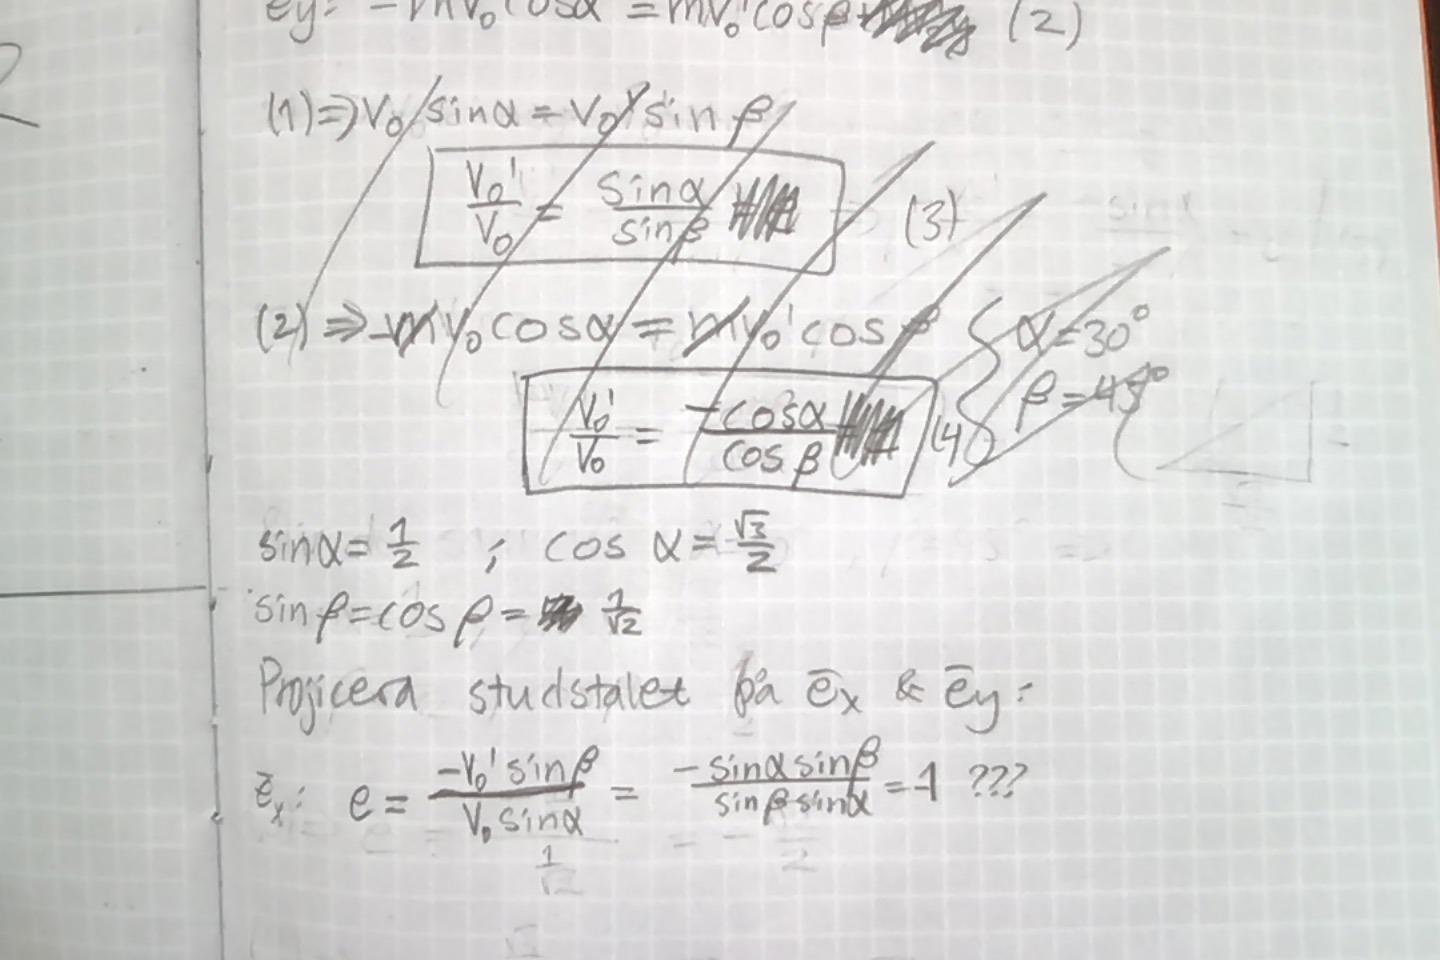 ey: -mv₀cosα = mv₀'cosβ (2)
(1)⇒ v₀ sinα = v₀' sin β
v₀'/v₀ = sinα/sinβ (3)
(2) ⇒ -mv₀cosα = mv₀'cos β { α = 30°
β = 45°
v₀'/v₀ = -cosα/cos β (4)
sinα = 1/2 ; cos α = √3/2
sin β = cos β = 1/√2
Projicera studstalet på ēx & ēy:
ēx: e = -v₀' sinβ/v₀ sinα = -sinα sinβ/sinβ sinα = -1 ???